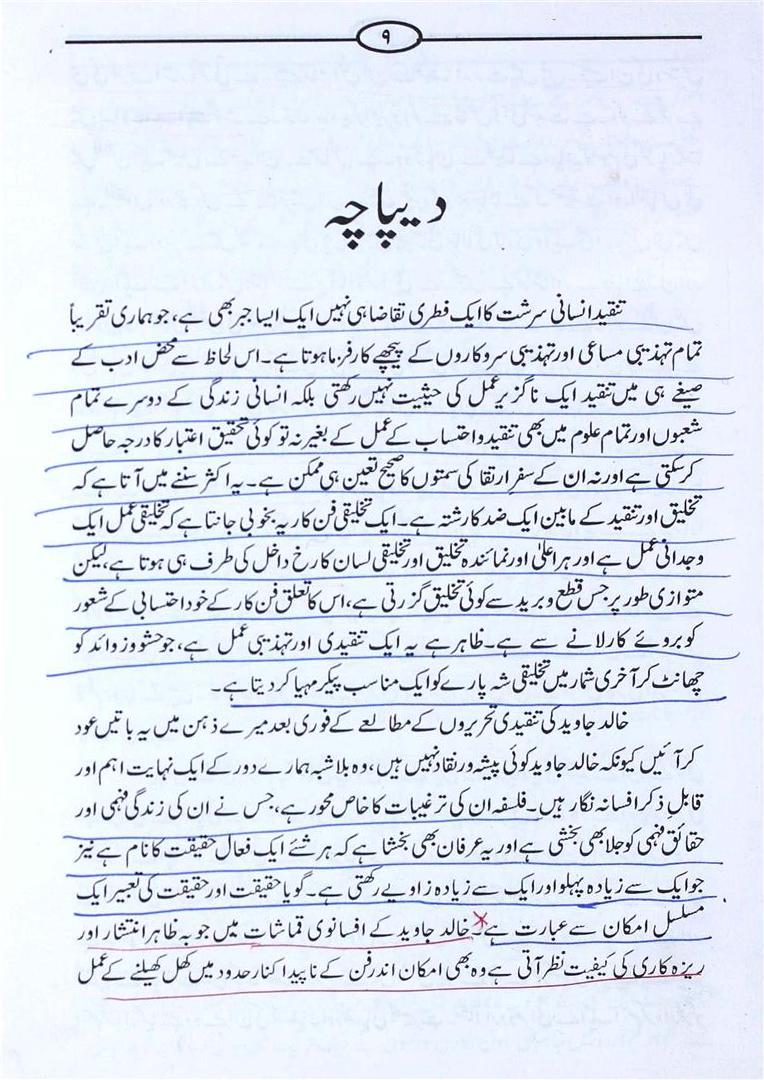 ۹
دیباچہ
تنقید انسانی سرشت کا ایک فطری تقاضا ہی نہیں ایک ایسا جبر بھی ہے، جو ہماری تقریباً
تمام تہذیبی مساعی اور تہذیبی سروکاروں کے پیچھے کارفرما ہوتا ہے۔ اس لحاظ سے محض ادب کے
صیغے ہی میں تنقید ایک ناگزیر عمل کی حیثیت نہیں رکھتی بلکہ انسانی زندگی کے دوسرے تمام
شعبوں اور تمام علوم میں بھی تنقید و احتساب کے عمل کے بغیر نہ تو کوئی تحقیق اعتبار کا درجہ حاصل
کرسکتی ہے اور نہ ان کے سفر ارتقا کی سمتوں کا صحیح تعین ہی ممکن ہے۔ یہ اکثر سننے میں آتا ہے کہ
تخلیق اور تنقید کے مابین ایک ضد کا رشتہ ہے۔ ایک تخلیقی فن کار یہ بخوبی جانتا ہے کہ تخلیقی عمل ایک
وجدانی عمل ہے اور ہر اعلیٰ اور نمائندہ تخلیق اور تخلیقی لسان کا رخ داخل کی طرف ہی ہوتا ہے، لیکن
متوازی طور پر جس قطع و برید سے کوئی تخلیق گزرتی ہے، اس کا تعلق فن کار کے خود احتسابی کے شعور
کو بروئے کار لانے سے ہے۔ ظاہر ہے یہ ایک تنقیدی اور تہذیبی عمل ہے، جو حشو و زوائد کو
چھانٹ کر آخری شمار میں تخلیقی شہ پارے کو ایک مناسب پیکر مہیا کردیتا ہے۔
خالد جاوید کی تنقیدی تحریروں کے مطالعے کے فوری بعد میرے ذہن میں یہ باتیں عود
کر آئیں کیونکہ خالد جاوید کوئی پیشہ ور نقاد نہیں ہیں، وہ بلاشبہ ہمارے دور کے ایک نہایت اہم اور
قابلِ ذکر افسانہ نگار ہیں۔ فلسفہ ان کی ترغیبات کا خاص محور ہے، جس نے ان کی زندگی فہمی اور
حقائق فہمی کو جلا بھی بخشی ہے اور یہ عرفان بھی بخشا ہے کہ ہر شئے ایک فعال حقیقت کا نام ہے نیز
جو ایک سے زیادہ پہلو اور ایک سے زیادہ زاویے رکھتی ہے۔ گویا حقیقت اور حقیقت کی تعبیر ایک
مسلسل امکان سے عبارت ہے۔ خالد جاوید کے افسانوی قماشات میں جو بہ ظاہر انتشار اور
ریزہ کاری کی کیفیت نظر آتی ہے وہ بھی امکان اندر فن کے ناپیدا کنار حدود میں کھل کھیلنے کے عمل